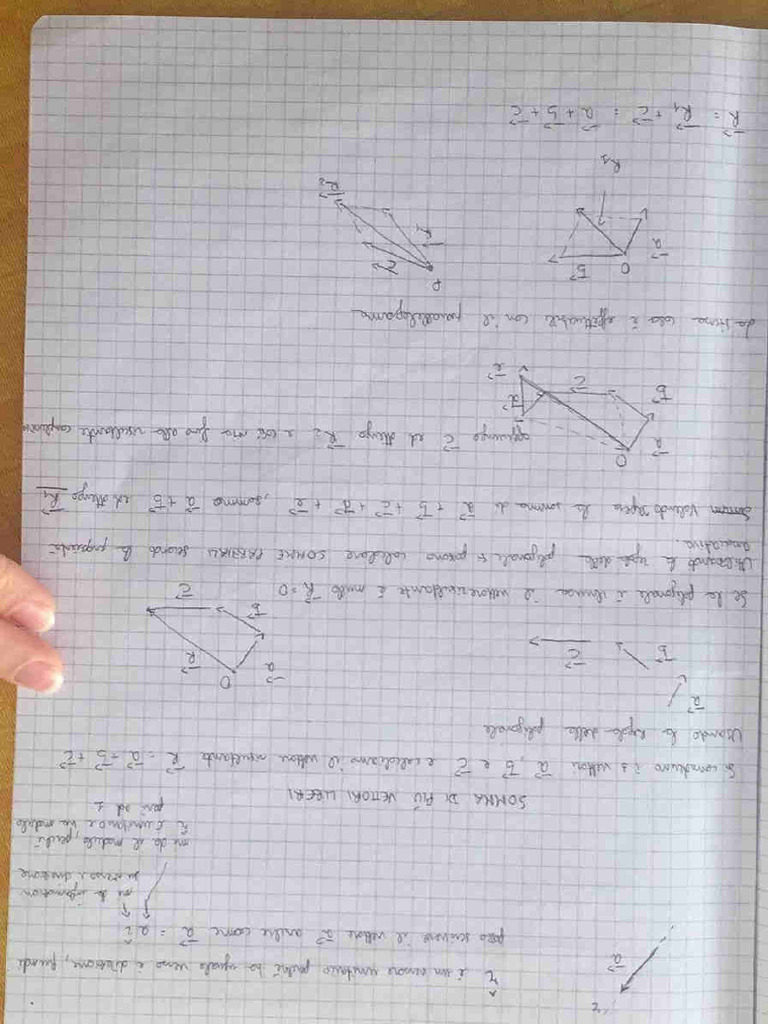 r
a⃗
r̂ è un versore unitario perché ha uguale verso e direzione, quindi
posso scrivere il vettore a⃗ anche come a⃗ = a r̂
mi dà informazioni
su verso e direzione
mi dà il modulo, perché
r̂ è unitario e ha modulo
pari ad 1
SOMMA DI PIÙ VETTORI LIBERI
Si considerino i 3 vettori a⃗, b⃗ e c⃗ e calcoliamo il vettore risultante R⃗ = a⃗ + b⃗ + c⃗
Usando la regola della poligonale
a⃗
b⃗
c⃗
O
a⃗
R⃗
b⃗
c⃗
Se la poligonale è chiusa il vettore risultante è nullo R⃗ = 0
Utilizzando la regola della poligonale si possono calcolare SOMME PARZIALI secondo la proprietà
associativa.
Volendo sapere la somma di a⃗ + b⃗ + c⃗ + d⃗ + e⃗, sommo a⃗ + b⃗ ed ottengo R⃗₁
aggiungo c⃗ ed ottengo R⃗₂ e così via fino alla risultante
O
a⃗
b⃗
c⃗
d⃗
e⃗
La stessa cosa è effettuabile con il parallelogramma
O
a⃗
b⃗
R₁
P
c⃗
R₁
R⃗₂
R⃗ = R⃗₁ + c⃗ = a⃗ + b⃗ + c⃗